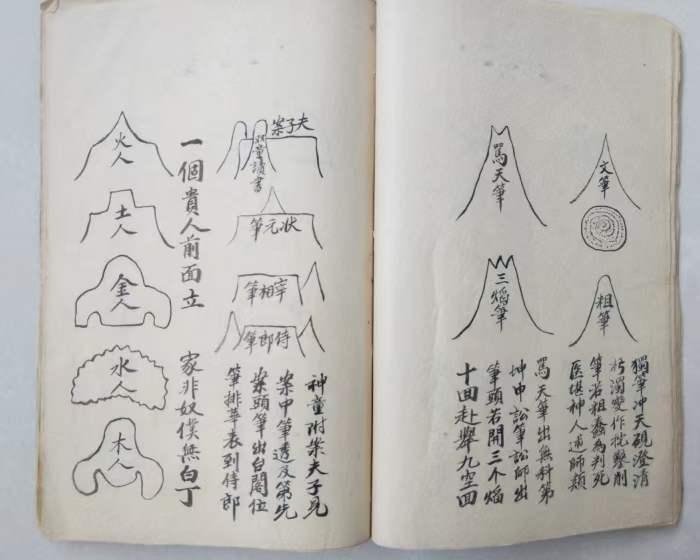 文筆
粗筆
獨筆冲天硯澄清
筆若粗蠢為判死
医堪神人述師類
罵天筆
三焰筆
罵天筆出無科第
坤申訟筆訟師出
筆頭若開三个焰
十回赴舉九空回
夫子案
双童讀書
状元筆
宰相筆
侍郎筆
神童附案夫子見
案中筆透及第先
案頭筆出台閣位
筆排華表到侍郎
一個貴人前面立 家非奴僕無白丁
火人
土人
金人
水人
木人